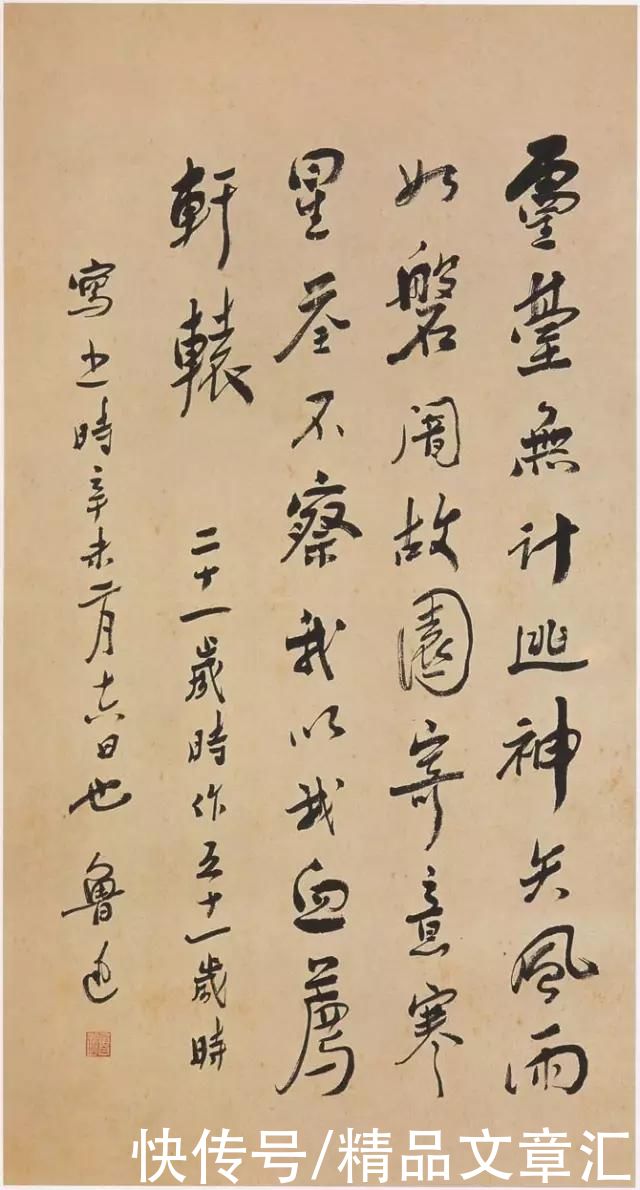 靈臺無計逃神矢風雨
如磐闇故園寄意寒
星荃不察我以我血薦
軒轅 二十一歲時作五十一歲時
寫之時辛未二月十六日也 魯迅
快传号/精品文章汇